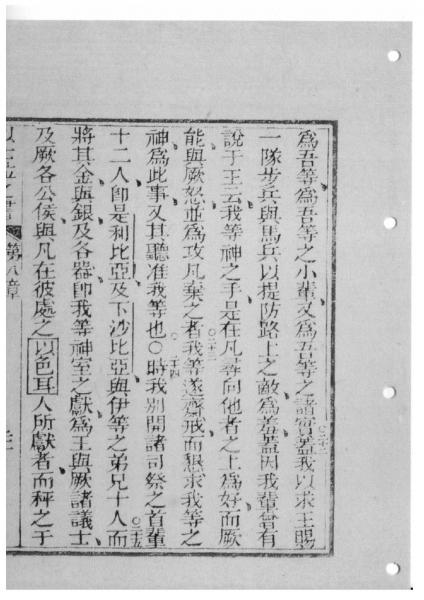 為吾等為吾等之小輩又為吾等之諸寶蓋我以求王賜
○二十二
一隊步兵與馬兵以提防路上之敵為羞蓋因我輩曾有
說于王云我等神之手是在凡尋向他者之上為好而厥
能與厥怒並為攻凡棄之者我等遂齋戒而懇求我等之
○二十三
神為此事又其聽准我等也○時我別開諸司祭之首輩
○二十四
十二人即是利比亞及下沙比亞與伊等之弟兄十人而
○二十五
將其金與銀及各器即我等神室之獻為王與厥諸議士
及厥各公侯與凡在彼處之以色耳人所獻者而秤之于
第八章